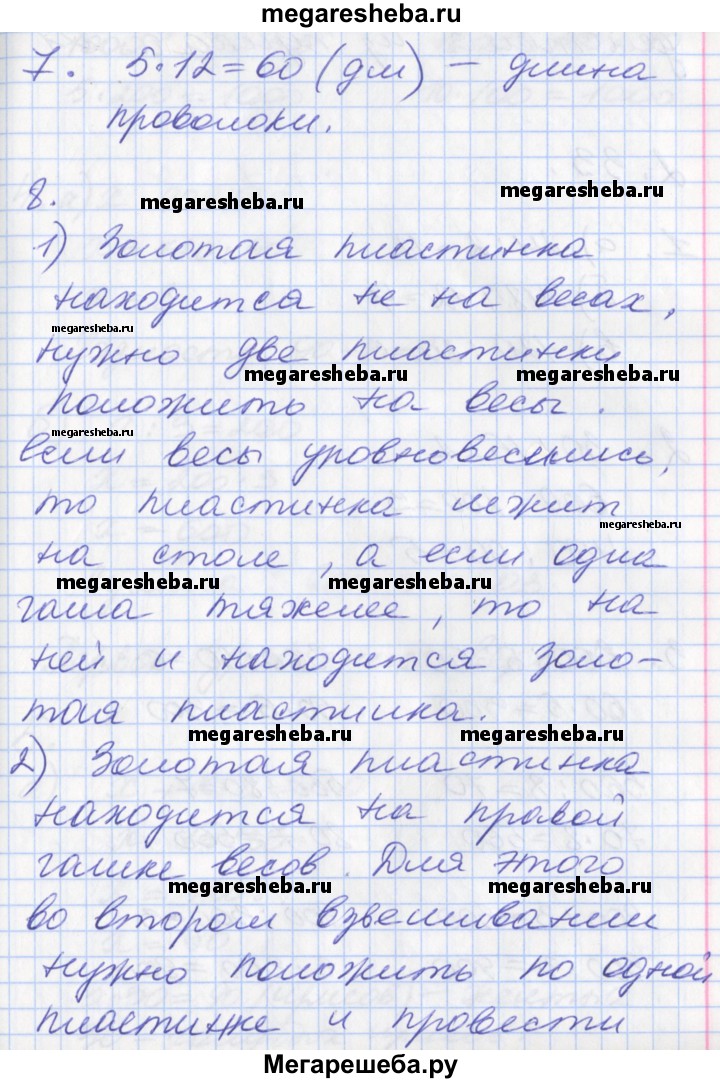 megaresheba.ru
7. 5·12=60 (дм) – длина
проволоки.
8.
megaresheba.ru
megaresheba.ru
1) Золотая пластинка
находится не на весах,
megaresheba.ru
нужно две пластинки
megaresheba.ru
megaresheba.ru
положить на весы.
megaresheba.ru
Если весы уровновесились,
то пластинка лежит
megaresheba.ru
на столе, а если одна
megaresheba.ru
megaresheba.ru
гаша тяжелее, то на
ней и находится золо-
тая пластинка.
megaresheba.ru
2) Золотая пластинка
находится на правой
гашке весов. Для этого
megaresheba.ru
megaresheba.ru
во втором взвешивании
нужно положить по одной
пластинке и провести
megaresheba.ru
megaresheba.ru
Мегарешеба.ру